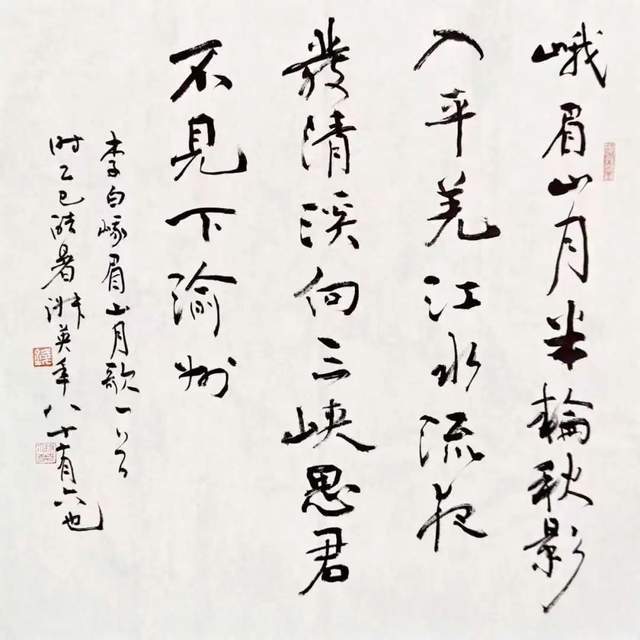 峨眉山月半輪秋影
入平羌江水流夜
發清溪向三峡思君
不見下渝州
李白峨眉山月歌一首
时乙巳酷暑英年八十有六也